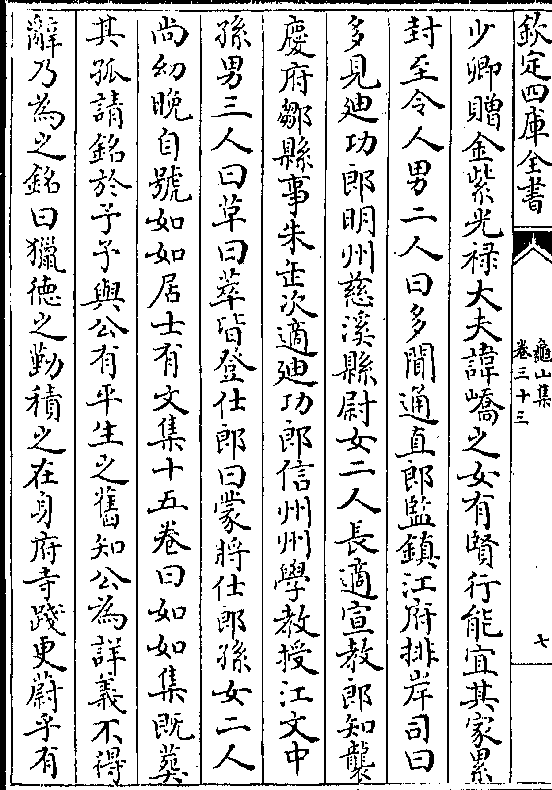 欽定四庫全書
龜山集
卷三十三
七
少卿贈金紫光禄大夫諱嶠之女有賢行能宜其家累
封至令人男二人曰多聞通直郎監鎮江府排岸司曰
多見廸功郎明州慈溪縣尉女二人長適宣教郎知襲
慶府鄒縣事朱缶次適廸功郎信州州學教授江文中
孫男三人曰草曰萃皆登仕郎曰蒙將仕郎孫女二人
尚幼晚自號如如居士有文集十五卷曰如如集既葬
其孤請銘於予予與公有平生之舊知公為詳義不得
辭乃為之銘曰獵德之勤積之在身府寺踐更蔚乎有